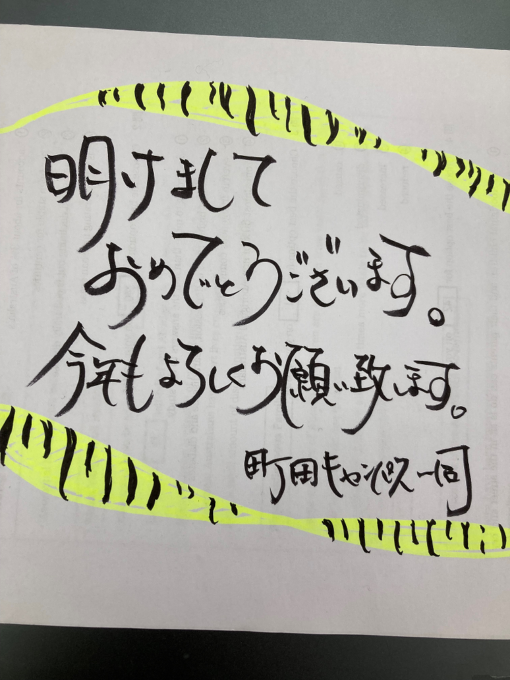 明けまして
おめでとうございます。
今年もよろしくお願い致します。
町田キャンパス一同